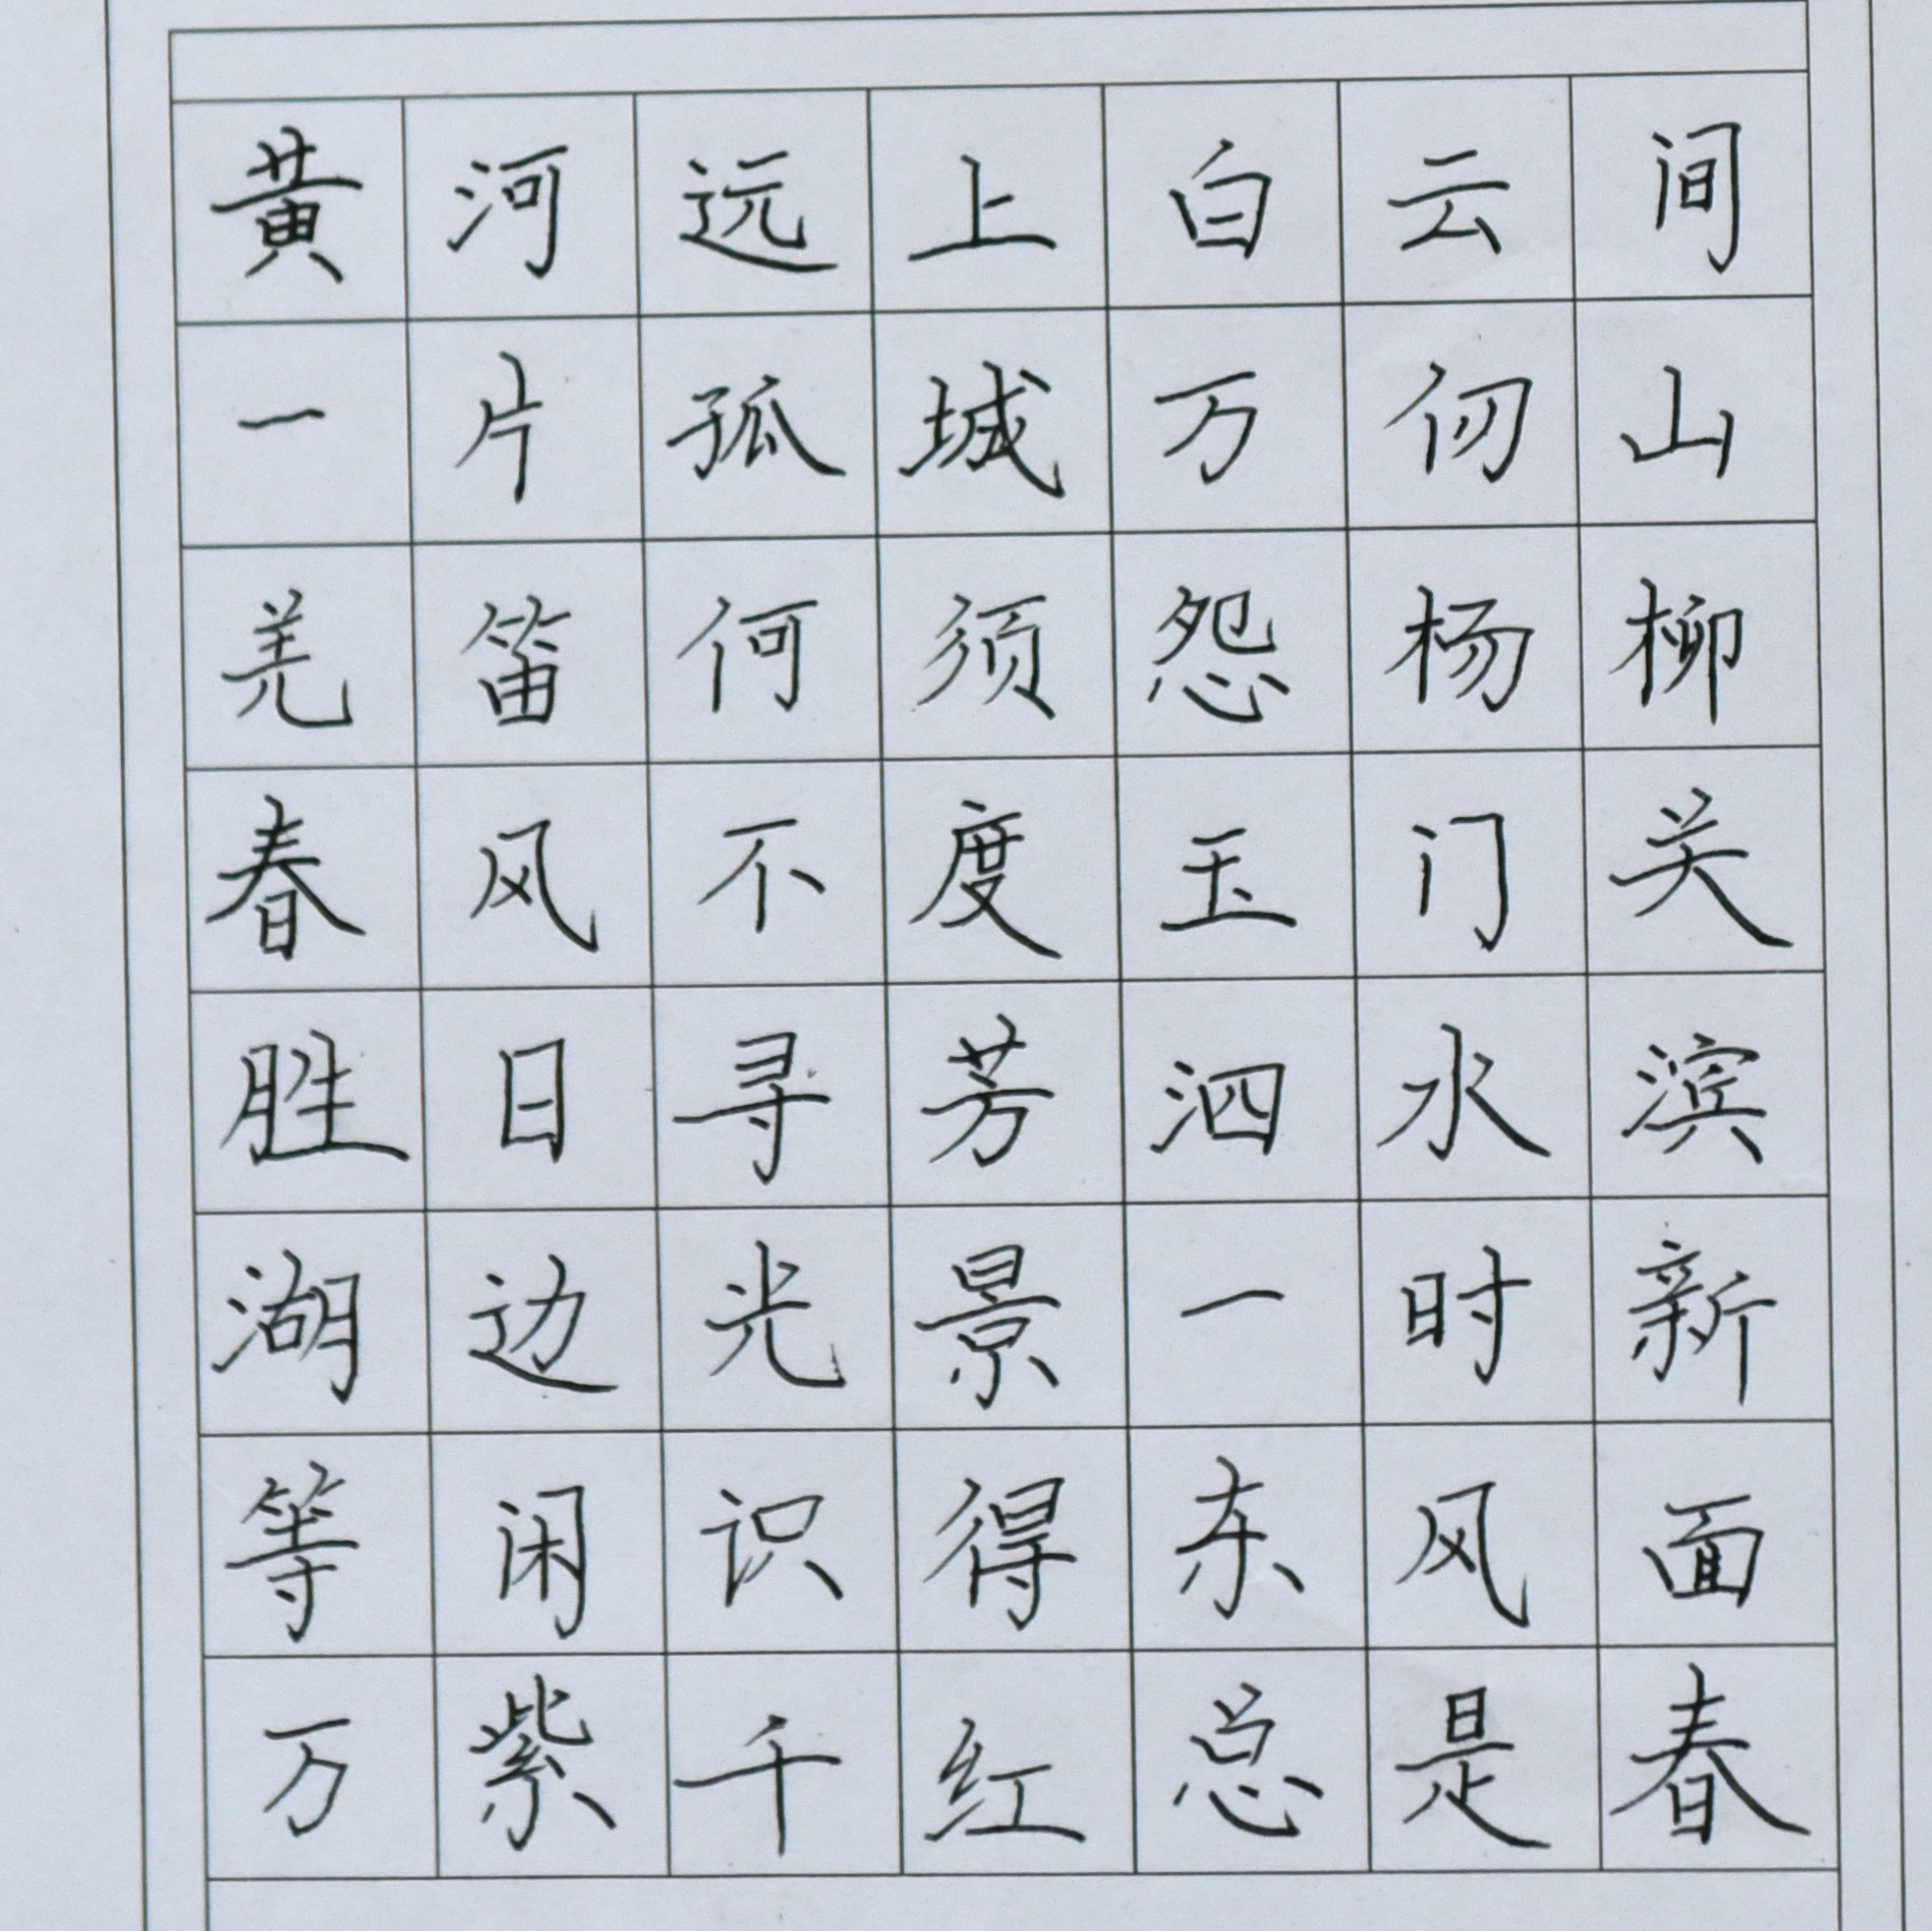 黄河远上白云间
一片孤城万仞山
羌笛何须怨杨柳
春风不度玉门关
胜日寻芳泗水滨
湖边光景一时新
等闲识得东风面
万紫千红总是春